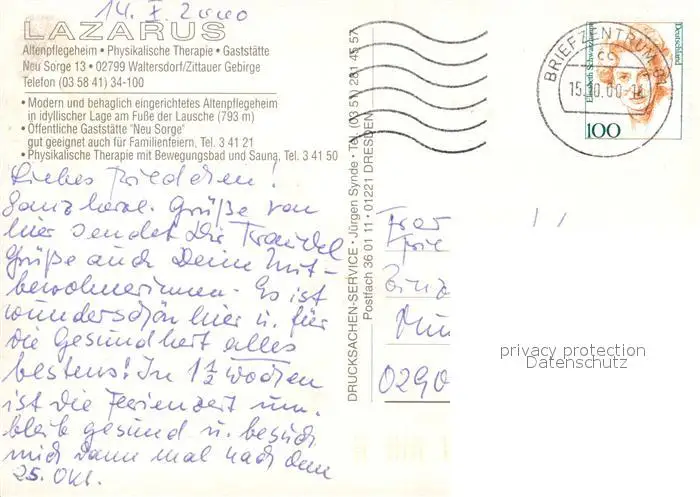 14. X. 2000
LAZARUS
Altenpflegeheim • Physikalische Therapie • Gaststätte
Neu Sorge 13 • 02799 Waltersdorf/Zittauer Gebirge
Telefon (03 58 41) 34-100
• Modern und behaglich eingerichtetes Altenpflegeheim
in idyllischer Lage am Fuße der Lausche (793 m)
• Öffentliche Gaststätte "Neu Sorge"
gut geeignet auch für Familienfeiern, Tel. 3 41 21
• Physikalische Therapie mit Bewegungsbad und Sauna, Tel. 3 41 50
Liebes Friedchen!
Ganz herzl. Grüße von
hier sendet Dir Traudel
Grüße auch Deine Mit-
bewohnerinnen. Es ist
wunderschön hier u. für
die Gesundheit alles
bestens! In 1 1/2 Wochen
ist die Ferienzeit um.
bleib gesund u. besuch
mich dann mal nach dem
25. Okt.
DRUCKSACHEN-SERVICE • Jürgen Synde • Tel. (03 51) 281 45 57
Postfach 36 01 11 • 01221 DRESDEN
BRIEFZENTRUM 01
cc
15.10.00-18
Deutschland
Elisabeth Schwarzhaupt
100
Frau
Frie
Mün
0290
privacy protection
Datenschutz